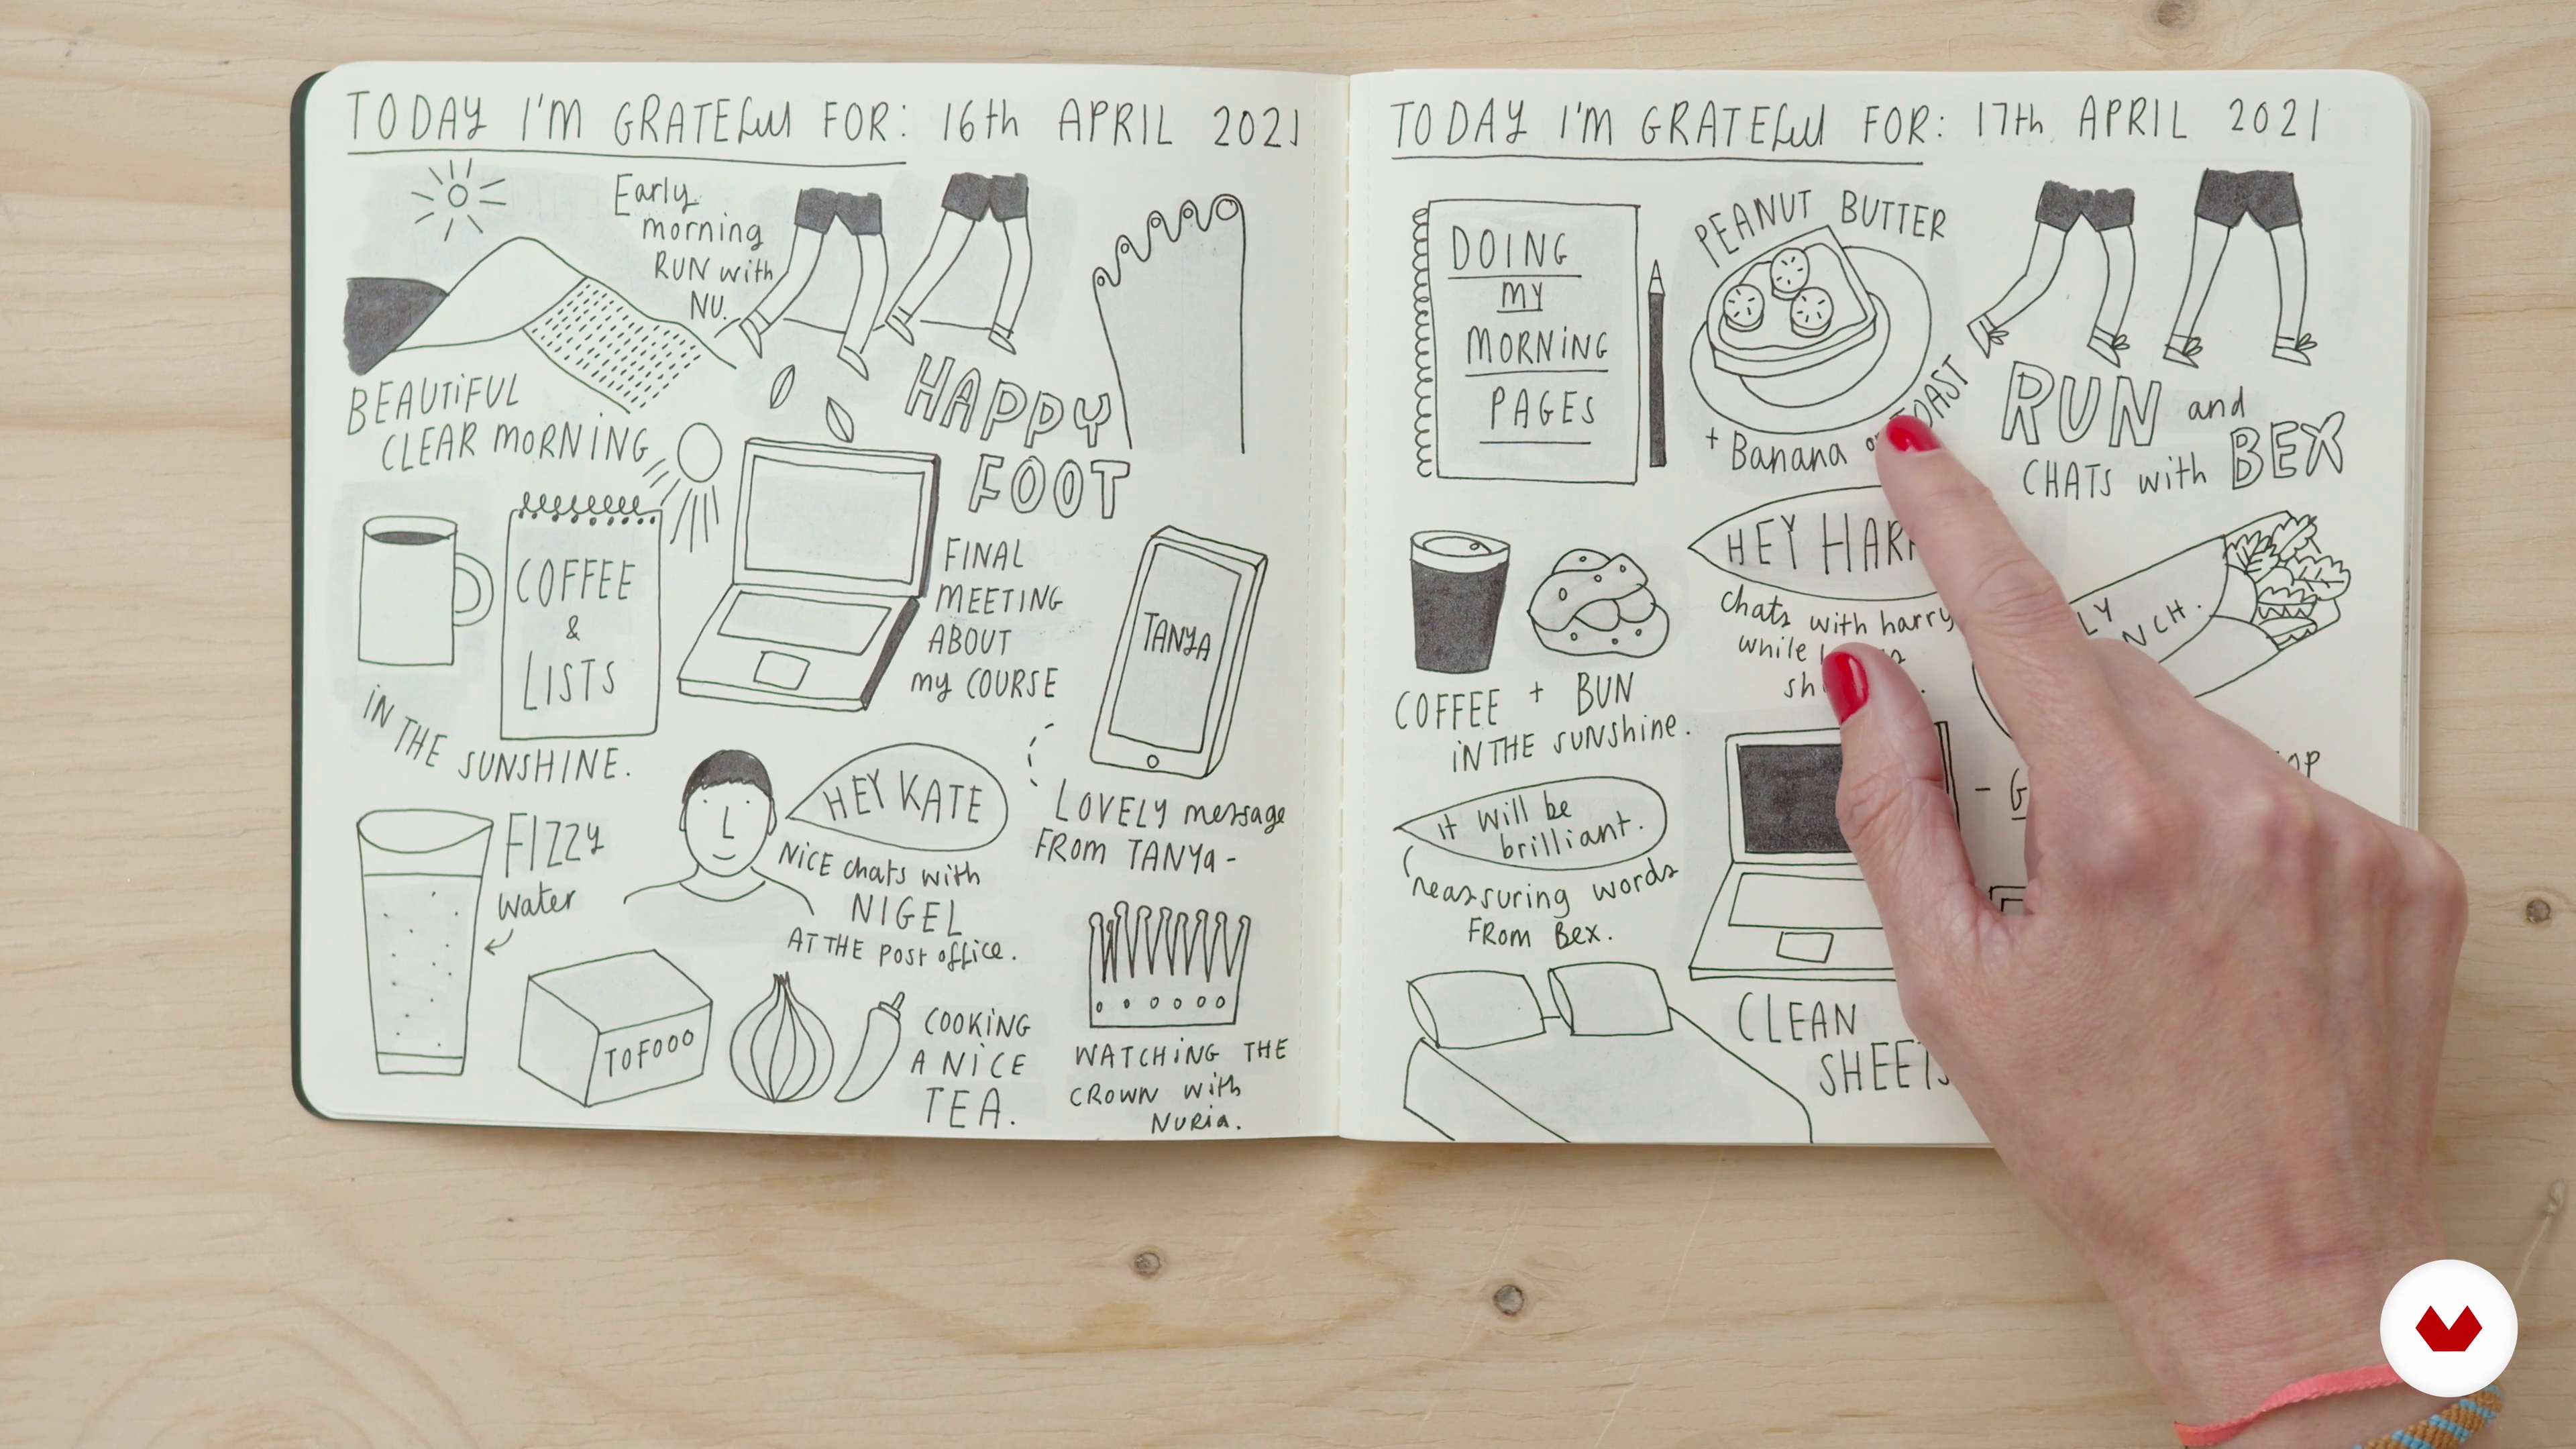 TODAY I'M GRATEFUL FOR: 16th APRIL 2021
Early
morning
RUN with
NU.
BEAUTIFUL
CLEAR MORNING
HAPPY
FOOT
COFFEE
&
LISTS
IN THE SUNSHINE.
FINAL
MEETING
ABOUT
my COURSE
TANYA
LOVELY message
FROM TANYA -
FIZZY
water
HEY KATE
NICE chats with
NIGEL
AT THE post office.
TOFOOO
COOKING
A NICE
TEA.
WATCHING THE
CROWN with
NURIA.
TODAY I'M GRATEFUL FOR: 17th APRIL 2021
DOING
MY
MORNING
PAGES
PEANUT BUTTER
+ Banana on TOAST
RUN and
CHATS with BEX
COFFEE + BUN
IN THE SUNSHINE.
HEY
chats with harry
while
it will be
brilliant.
reassuring words
FROM BEX.
CLEAN
SHEETS